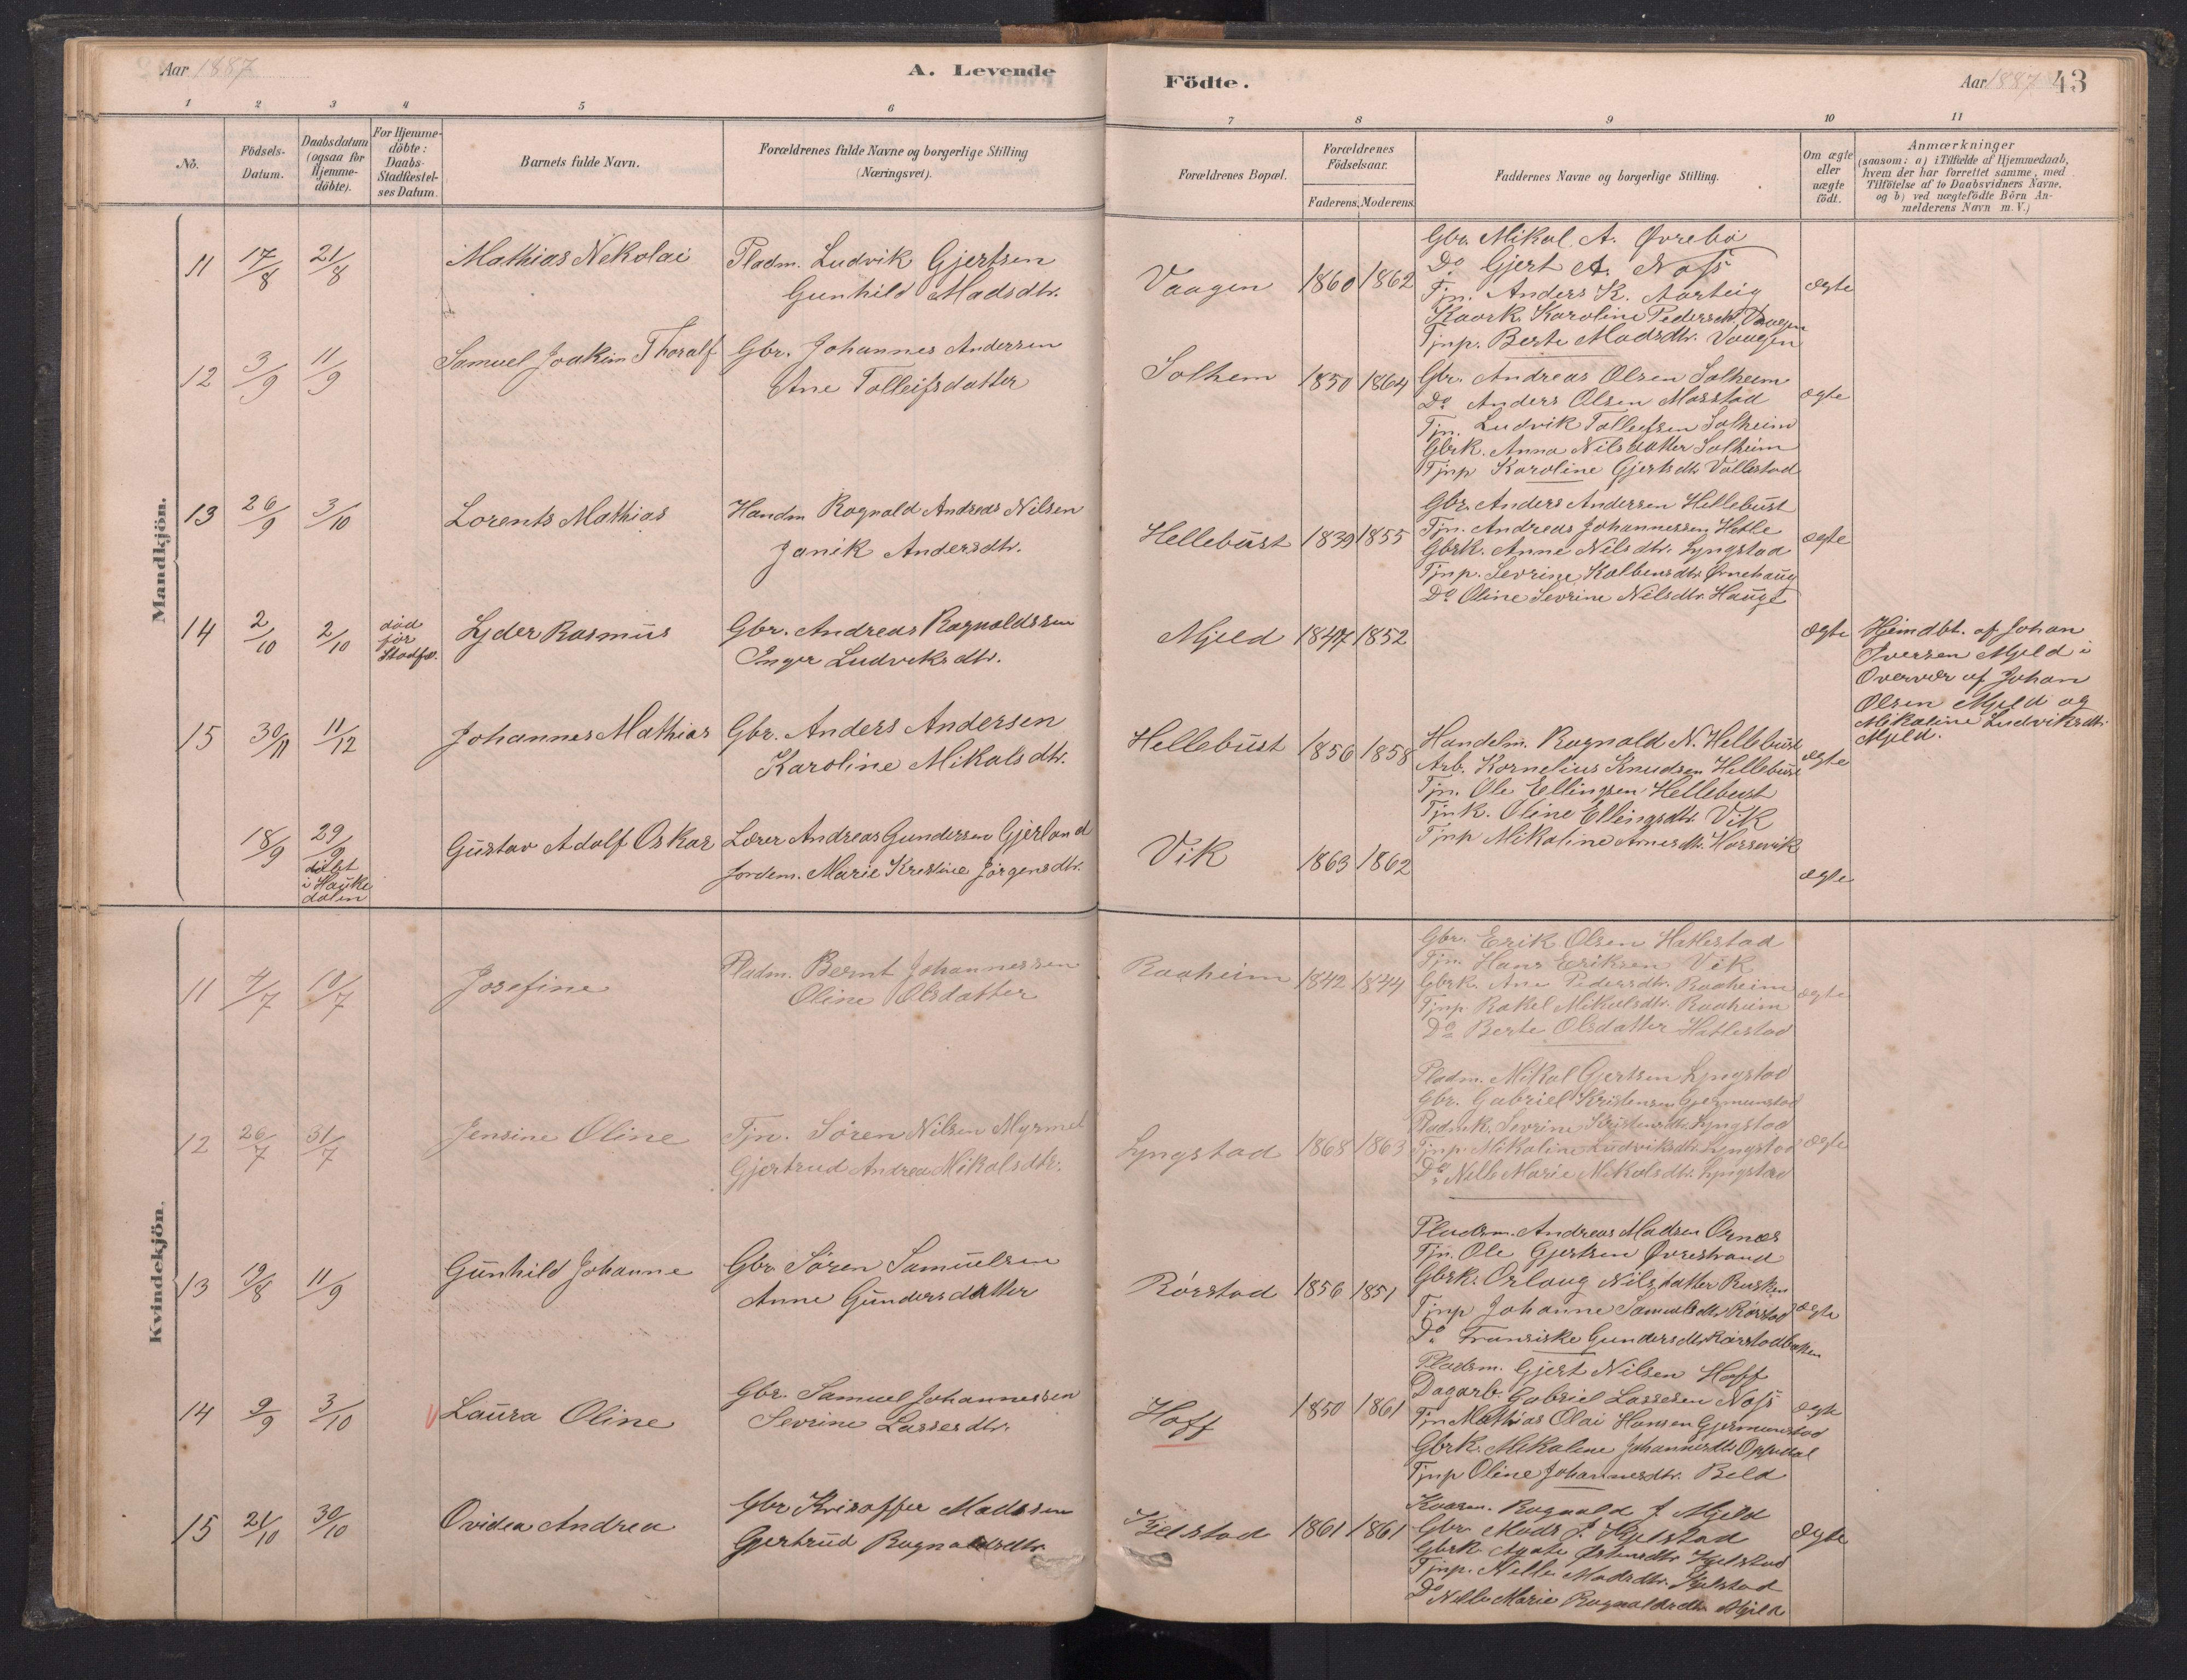 Aar 1887
A. Levende
Födte.
Aar 1887
43
1 2 3 4 5 6 7 8 9 10 11
No.
Födsels-
Datum.
Daabsdatum
(ogsaa for
Hjemme-
döbte).
For Hjemme-
döbte:
Daabs-
Stadfæstel-
ses Datum.
Barnets fulde Navn.
Forældrenes fulde Navne og borgerlige Stilling
(Næringsvei).
Forældrenes Bopæl.
Forældrenes
Födselsaar.
Faderens. Moderens.
Faddernes Navne og borgerlige Stilling.
Om ægte
eller
uægte
födt.
Anmærkninger
(saasom: a) i Tilfælde af Hjemmedaab,
hvem der har forrettet samme, med
Tilföielse af to Daabsvidners Navne.
og b) ved uægtefödte Börn An-
melderens Navn m. V.)
Mandkjön.
11 17/8 21/8 Mathias Nekolai
Pladm. Ludvik Gjertsen
Gunhild Madsdtr.
Vaagen 1860 1862
Gbr. Mikal A. Øvrebø
Do Gjert A. Nass
Tjn. Anders K. Aarteig
Kaark. Karoline Pedersdt. Vaagen
Tjnp. Berte Madsdtr. Vaagen
ægte
12 3/9 11/9 Samuel Joakim Thoralf
Gbr. Johannes Andersen
Ane Tolleifsdatter
Solhem 1850 1864
Gbr. Andreas Olsen Solheim
Do Anders Olsen Masstad
Tjn. Ludvik Tolleifsen Solheim
Gbrk. Anna Nilsdatter Solheim
Tjnp Karoline Gjertsdtr Vallestad
ægte
13 26/9 3/10 Lorents Mathias
Handm Ragnald Andreas Nilsen
Janik Andersdtr.
Hellebust 1839 1855
Gbr. Anders Andersen Hellebust
Tjn. Andreas Johannessen Hetle
Gbrk. Anne Nilsdtr. Lyngstad
Tjnp. Sevrine Kolbensdtr Ørnehaug
Do Oline Sevrine Nilsdtr. Hauge
ægte
14 2/10 2/10
död
för
Stadfæ.
Lyder Rasmus
Gbr. Andreas Ragnaldssen
Inger Ludveksdtr.
Mjeld 1847 1852
ægte
Hjemdbt. af Johan
Iversen Mjeld i
Overvær af Johan
Olsen Mjeld og
Mikaline Ludviksdtr.
Mjeld.
15 30/11 11/12 Johannes Mathias
Gbr. Anders Andersen
Karoline Mikalsdtr.
Hellebust 1856 1858
Handelm. Ragnald N. Hellebust
Arb. Kornelius Knudsen Hellebust
Tjn. Ole Ellingsen Hellebust
Tjnk. Oline Ellingsdtr Vik
Tjnp Mikaline Arnesdtr. Horsevik
ægte
18/9 29/9
döbt
i Hauke
dalen
Gustav Adolf Oskar
Lærer Andreas Gundersen Gjerland
Jordem. Marie Kristine Jörgensdtr.
Vik 1863 1862
ægte
Kvindekjön.
11 4/7 10/7 Josefine
Pladm. Bernt Johannessen
Oline Olsdatter
Raaheim 1842 1844
Gbr. Erik Olsen Hatlestad
Tjn. Hans Eriksen Vik
Gbrk. Ane Pedersdtr. Raaheim
Tjnp. Rakel Mikalsdtr. Raaheim
Do Berte Olsdatter Hatlestad
ægte
12 26/7 31/7 Jensine Oline
Tjn. Sören Nilsen Myrmel
Gjertrud Andrea Mikalsdtr.
Lyngstad 1868 1863
Pladm. Mikal Gjertsen Lyngstad
Gbr. Gabriel Kristensen Gjermunstad
Pladmk. Sevrine Kristensdtr. Lyngstad
Tjnp. Mikaline Ludviksdtr. Lyngstad
Do Nille Marie Mikalsdtr. Lyngstad
ægte
13 19/8 11/9 Gunhild Johanne
Gbr Sören Samuelsen
Anne Gundersdatter
Rörstad 1856 1851
Pladsm. Andreas Madsen Osnæs
Tjn. Ole Gjertsen Øvrestrand
Gbrk. Orlaug Nilsdatter Rusken
Tjnp Johanne Samuelsdtr Rörstad
Do Fransiske Gundersdtr. Rörstadbakken
ægte
14 9/9 3/10 Laura Oline
Gbr. Samuel Johannessen
Sevrine Lassesdtr.
Hoff 1850 1861
Pladsm. Gjert Nilsen Hoff
Dagarb. Gabriel Lassesen Nass
Tjn Mathias Olai Hansen Gjermunstad
Gbrk. Mikaline Johannesdtr Oppedal
Tjnp Oline Johannesdtr. Beld
ægte
15 21/10 30/10 Ovidea Andrea
Gbr Kristoffer Madssen
Gjertrud Ragnaldsdtr
Kjelstad 1861 1861
Ragnald J. Mjeld
Gbr. Mads J. Kjelstad
Gbrk. Agate Østensdtr Kjelstad
Tjnp. Nille Madsdtr. Kjelstad
Do Nille Marie Ragnaldsdtr Mjeld
Ægte